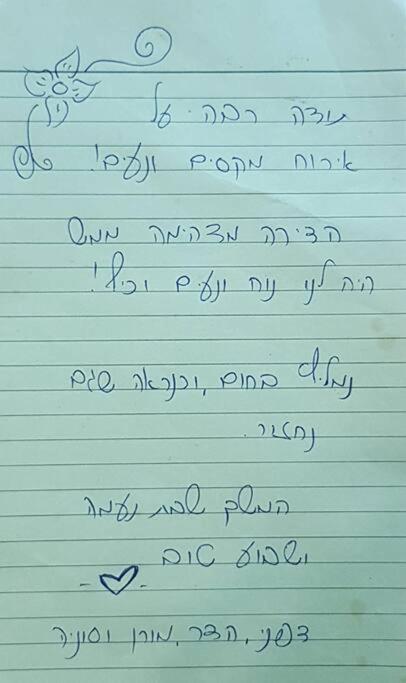 תודה רבה על
אירוח מקסים ונעים!
הדירה מדהימה ממש
היה לנו נוח ונעים וכיף!
נמליץ בחום, וכנראה שגם
נחזור.
המשך שבת נעימה
ושבוע טוב
דפני, הדר, מורן וסוניה